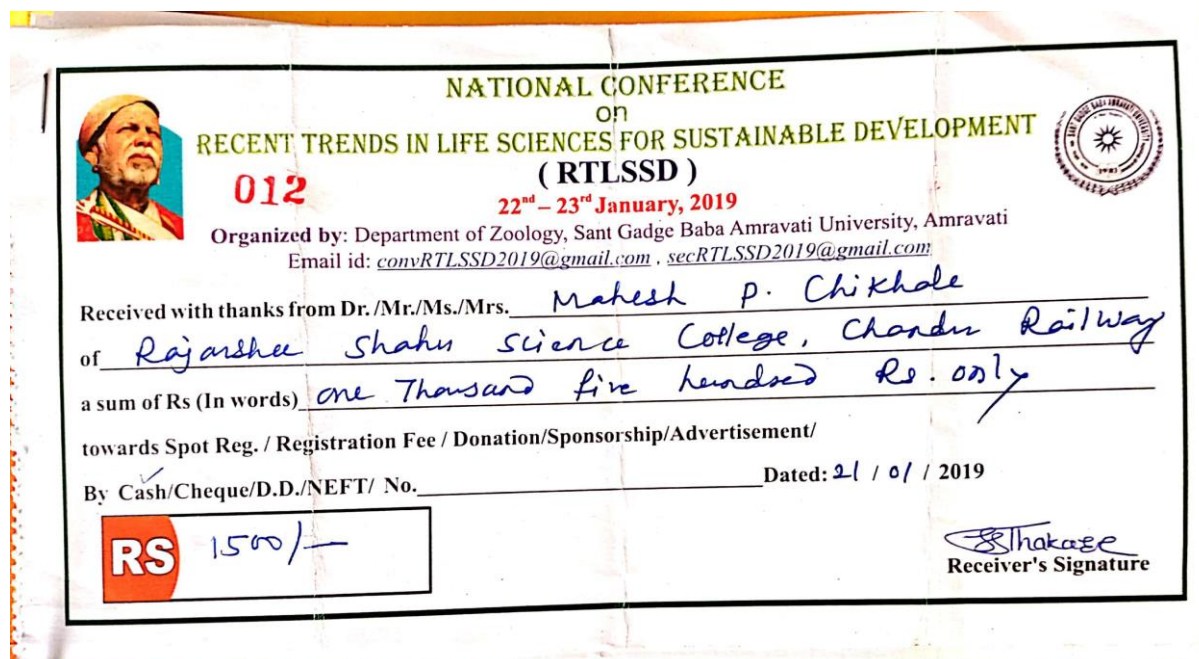 NATIONAL CONFERENCE
on
RECENT TRENDS IN LIFE SCIENCES FOR SUSTAINABLE DEVELOPMENT
( RTLSSD )
012
22nd – 23rd January, 2019
Organized by: Department of Zoology, Sant Gadge Baba Amravati University, Amravati
Email id: convRTLSSD2019@gmail.com , secRTLSSD2019@gmail.com
SANT GADGE BABA AMRAVATI UNIVERSITY
1983
Received with thanks from Dr./Mr./Ms./Mrs. Mahesh P. Chikhale
of Rajarshee Shahu Science College, Chandur Railway
a sum of Rs (In words) one Thousand five hundred Rs. only
towards Spot Reg. / Registration Fee / Donation/Sponsorship/Advertisement/
By Cash/Cheque/D.D./NEFT/ No. Dated: 21 / 01 / 2019
RS 1500/-
Thakare
Receiver's Signature